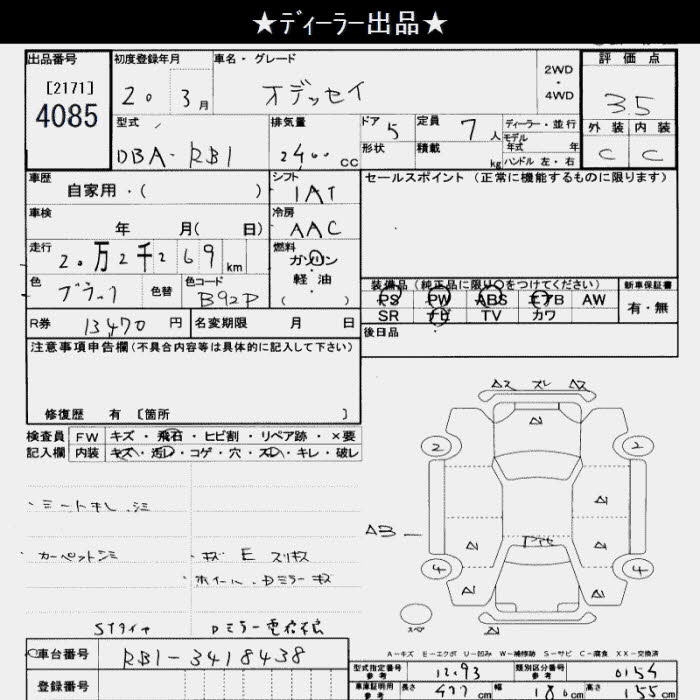 ★ディーラー出品★
出品番号 初度登録年月 車名・グレード 2WD・4WD 評価点
[2171]
4085
20. 3月 オデッセイ 3.5
型式 排気量 ドア 5 定員 7人 ディーラー・並行 外装 内装
DBA-RB1 2400cc 形状 積載 kg モデル年式 年 ハンドル 左・右 C C
車歴 自家用・( ) シフト IAT セールスポイント (正常に機能するものに限ります)
車検 年 月( 日) 冷房 AAC
走行 20万2千269km 燃料 ガソリン・軽油 ( )
色 ブラック 色替 色コード B92P
装備品(純正品に限り○をつけてください) 新車保証書
PS PW ABS エアB AW 有・無
SR ナビ TV カワ
R券 13,470円 名変期限 月 日 後日品
注意事項申告欄(不具合内容等は具体的に記入して下さい)
修復歴 有 [箇所 ]
検査員 FW キズ・飛石・ヒビ割・リペア跡・×要
記入欄 内装 キズ・汚レ・コゲ・穴・スレ・キレ・破レ
・シートキレ.シミ
・カーペットシミ ・キズ E スリキズ
・ホイール.Dミラーキズ
STタイヤ Dミラー電格不良
車台番号 RB1-3418438
登録番号
Aス スレ Aス
A1
2 2
A1
A3
A1 A1
4 4
A1 A1
スペア A1
A-キズ E-エクボ U-凹み W-補修跡 S-サビ C-腐食 XX-交換済
型式指定番号 参考 1293 類別区分番号 参考 0154
車庫証明用 参考 長さ 477cm 幅 180cm 高さ 155cm